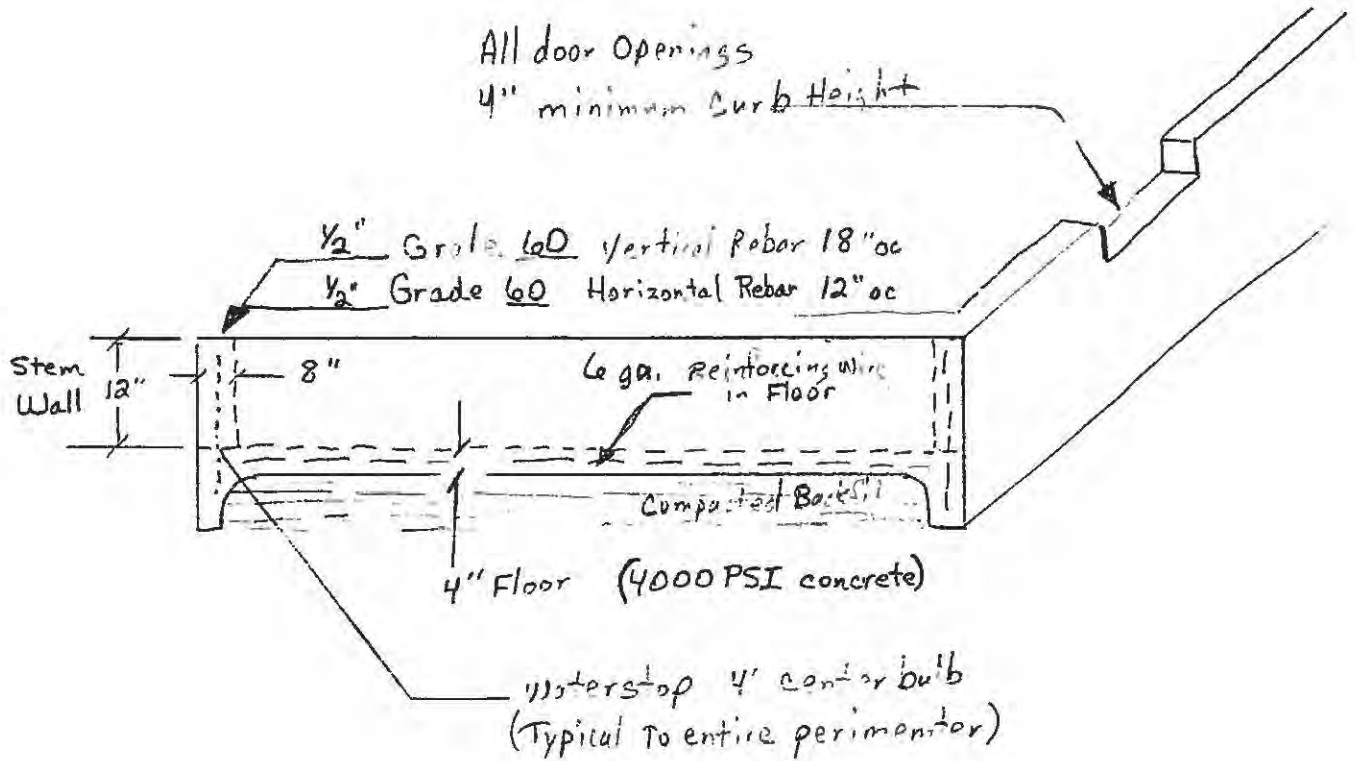 All door Openings
4" minimum Curb Height
1/2" Grade 60 Vertical Rebar 18" oc
1/2" Grade 60 Horizontal Rebar 12" oc
Stem
Wall
12"
8"
6 ga. Reinforcing Wire
in Floor
Compacted Backfill
4" Floor (4000 PSI concrete)
Waterstop 4' center bulb
(Typical To entire perimentor)